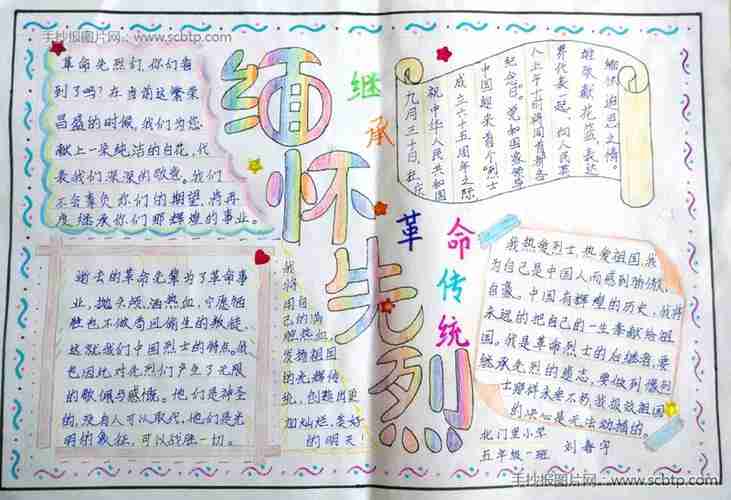 手抄报图片网：www.scbtp.com
革命先烈们，你们看
到了吗？在当前这繁荣
昌盛的时候，我们为您
献上一朵纯洁的白花，代
表我们深深的敬意。我们
不会辜负你们的期望，将再
度继承你们那辉煌的事业。
缅怀先烈
继承
革命传统
九月三十日，在庆
祝中华人民共和国
成立六十五周年之际，
中国迎来首个“烈士
纪念日”。党和国家领导
人上午十时将同首都各
界代表一起，向人民英
雄敬献花篮表达
缅怀追思之情。
逝去的革命先辈为了革命事
业，抛头颅、洒热血，宁愿牺
牲也不做苟且偷生的叛徒，
这就我们中国烈士的特点。我
也因此对先烈们产生了无限
的敬佩与感慨。他们是神圣
的，没有人可以取代，他们是光
明的象征，可以战胜一切。
我
将
用自
己的满
腔热血，
发扬祖国
的光辉传
统，创造出更
加灿烂，美好
的明天！
我热爱烈士，热爱祖国，我
为自己是中国人而感到骄傲、
自豪。中国有辉煌的历史，我将
永远的把自己的一生奉献给祖
国。我是革命烈士的后继者，要
继承先烈的遗志，要做到像烈
士那样永垂不朽，我报效祖国
的决心是无法动摇的。
北门里小学
五年级一班 刘春宇
手抄报图片网：www.scbtp.com